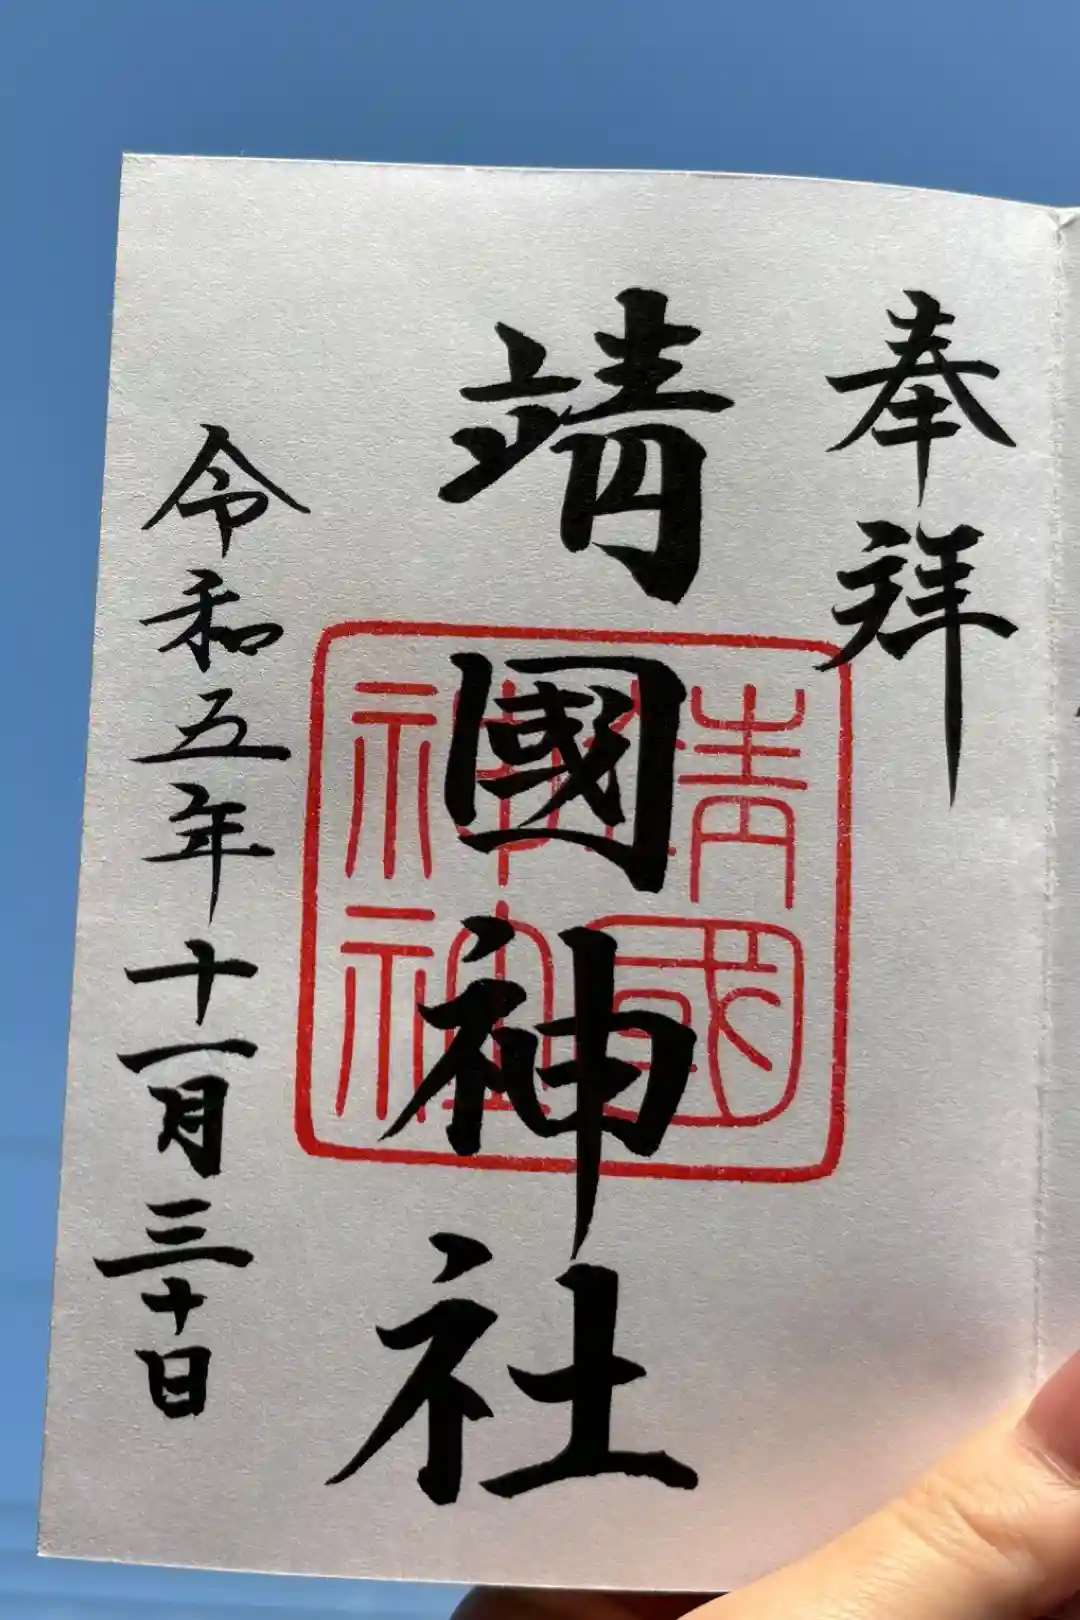 奉拝
靖國神社
靖國
神社
令和五年十一月三十日